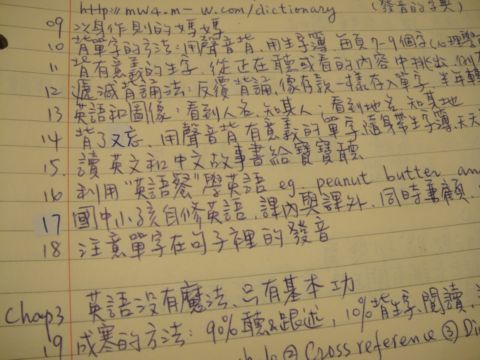 http://mw4.m-w.com/dictionary (發音的字典)
09 以身作則的媽媽
10 背單字的方法:用聲音背,用生字簿,每頁7-9個字
11 背有意義的生字,從正在聽或看的內容中挑出
12 遞減背誦法:反覆背誦,像存款一樣存入單字,
13 英語和圖像:看到人名,知其人;看到地名,知其地
14 背了又忘,用聲音背有意義的單字,隨身帶生字簿,天天
15. 讀英文和中文故事書給寶寶聽
16 利用"英語餐"學英語 eg. peanut butter and
17 國中小孩自修英語,課內與課外,同時兼顧
18 注意單字在句子裡的發音
Chap3 英語沒有魔法,只有基本功
19 成寒的方法:90%聽&跟述,10%背生字,閱讀,
② Cross reference ③